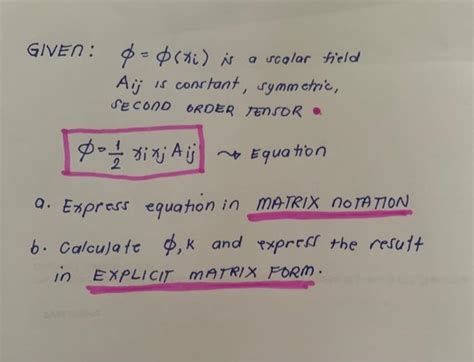 GIVEN: ϕ = ϕ(xi) is a scalar field
Aij is constant, symmetric,
SECOND ORDER TENSOR
ϕ = 1/2 xi xj Aij ⤳ Equation
a. Express equation in MATRIX NOTATION
b. Calculate ϕ,k and express the result
in EXPLICIT MATRIX FORM.